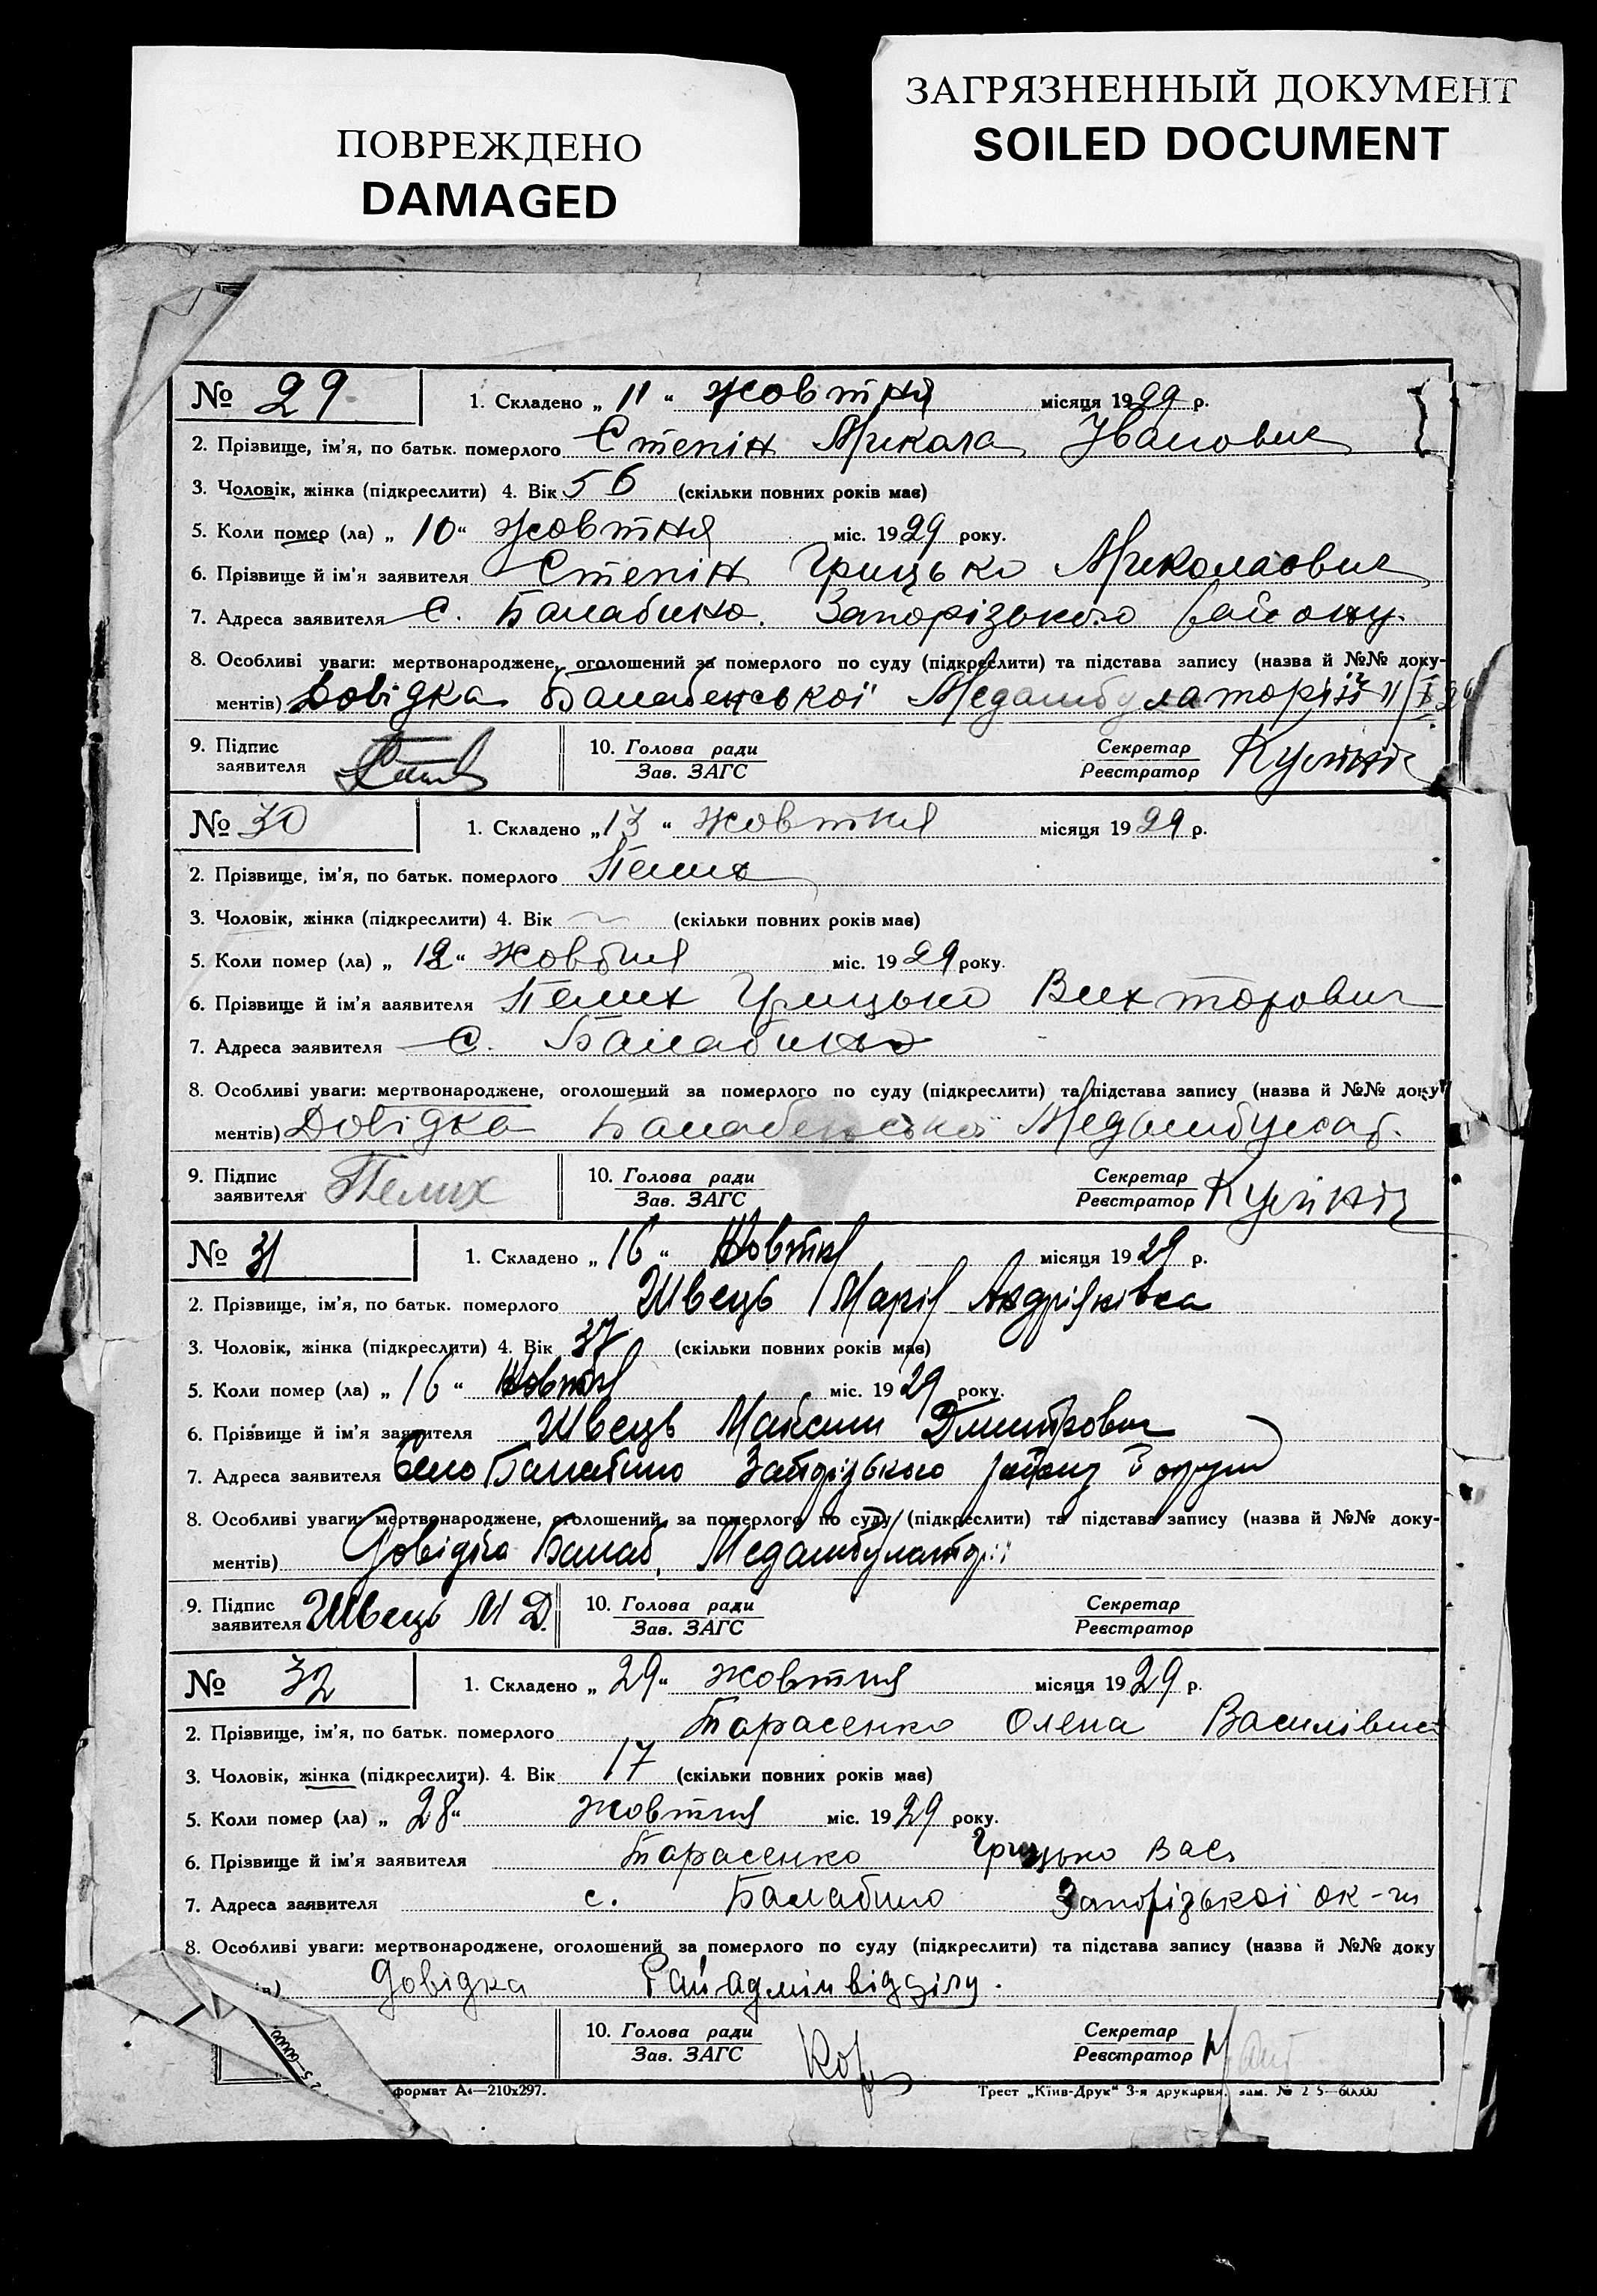 ПОВРЕЖДЕНО
DAMAGED
ЗАГРЯЗНЕННЫЙ ДОКУМЕНТ
SOILED DOCUMENT
№ 29 1. Складено „ 11 “ жовтня місяця 1929 р.
2. Прізвище, ім'я, по батьк. померлого Степін Микола Іванович
3. Чоловік, жінка (підкреслити) 4. Вік 56 (скільки повних років має)
5. Коли помер (ла) „ 10 “ жовтня міс. 1929 року.
6. Прізвище й ім'я заявителя Степін Грицько Миколаович
7. Адреса заявителя с. Балабино. Запорізького району.
8. Особливі уваги: мертвонароджене, оголошений за померлого по суду (підкреслити) та підстава запису (назва й №№ доку-
ментів) Довідка Балабенської Медамбулаторіїї 11/
9. Підпис заявителя 10. Голова ради Зав. ЗАГС Секретар Реєстратор
№ 30 1. Складено „ 13 “ жовтня місяця 1929 р.
2. Прізвище, ім'я, по батьк. померлого Пелих
3. Чоловік, жінка (підкреслити) 4. Вік ~ (скільки повних років має)
5. Коли помер (ла) „ 12 “ жовтня міс. 1929 року.
6. Прізвище й ім'я ааявителя Пелих Грицько Вихторович
7. Адреса заявителя с. Балабино
8. Особливі уваги: мертвонароджене, оголошений за померлого по суду (підкреслити) та підстава запису (назва й №№ доку
ментів) Довідка Балабенської Медамбулат.
9. Підпис заявителя Пелих 10. Голова ради Зав. ЗАГС Секретар Реєстратор
№ 31 1. Складено „ 16 “ Жовтня місяця 1929 р.
2. Прізвище, ім'я, по батьк. померлого Швець Марія Андріяківна
3. Чоловік, жінка (підкреслити) 4. Вік 37 (скільки повних років має)
5. Коли помер (ла) „ 16 “ Жовтня міс. 1929 року.
6. Прізвище й ім'я заявителя Швець Максим Дмитрович
7. Адреса заявителя Село Балабино Запорізького району й округи
8. Особливі уваги: мертвонароджене, оголошений за померлого по суду (підкреслити) та підстава запису (назва й №№ доку-
ментів) Довідка Балаб. Медамбулаторії
9. Підпис заявителя Швець М Д. 10. Голова ради Зав. ЗАГС Секретар Реєстратор
№ 32 1. Складено „ 29 “ жовтня місяця 1929 р.
2. Прізвище, ім'я, по батьк. померлого Тарасенко Олена Василівна
3. Чоловік, жінка (підкреслити). 4. Вік 17 (скільки повних років має)
5. Коли помер (ла) „ 28 “ жовтня міс. 1929 року.
6. Прізвище й ім'я заявителя Тарасенко Грицько Вас.
7. Адреса заявителя с. Балабино Запорізької ок-ги
8. Особливі уваги: мертвонароджене, оголошений за померлого по суду (підкреслити) та підстава запису (назва й №№ доку
Довідка Райадмінвідділу.
10. Голова ради Зав. ЗАГС Секретар Реєстратор
формат А4—210х297. Трест „Київ-Друк“ 3-я друкарня. зам. № 2 5—60000